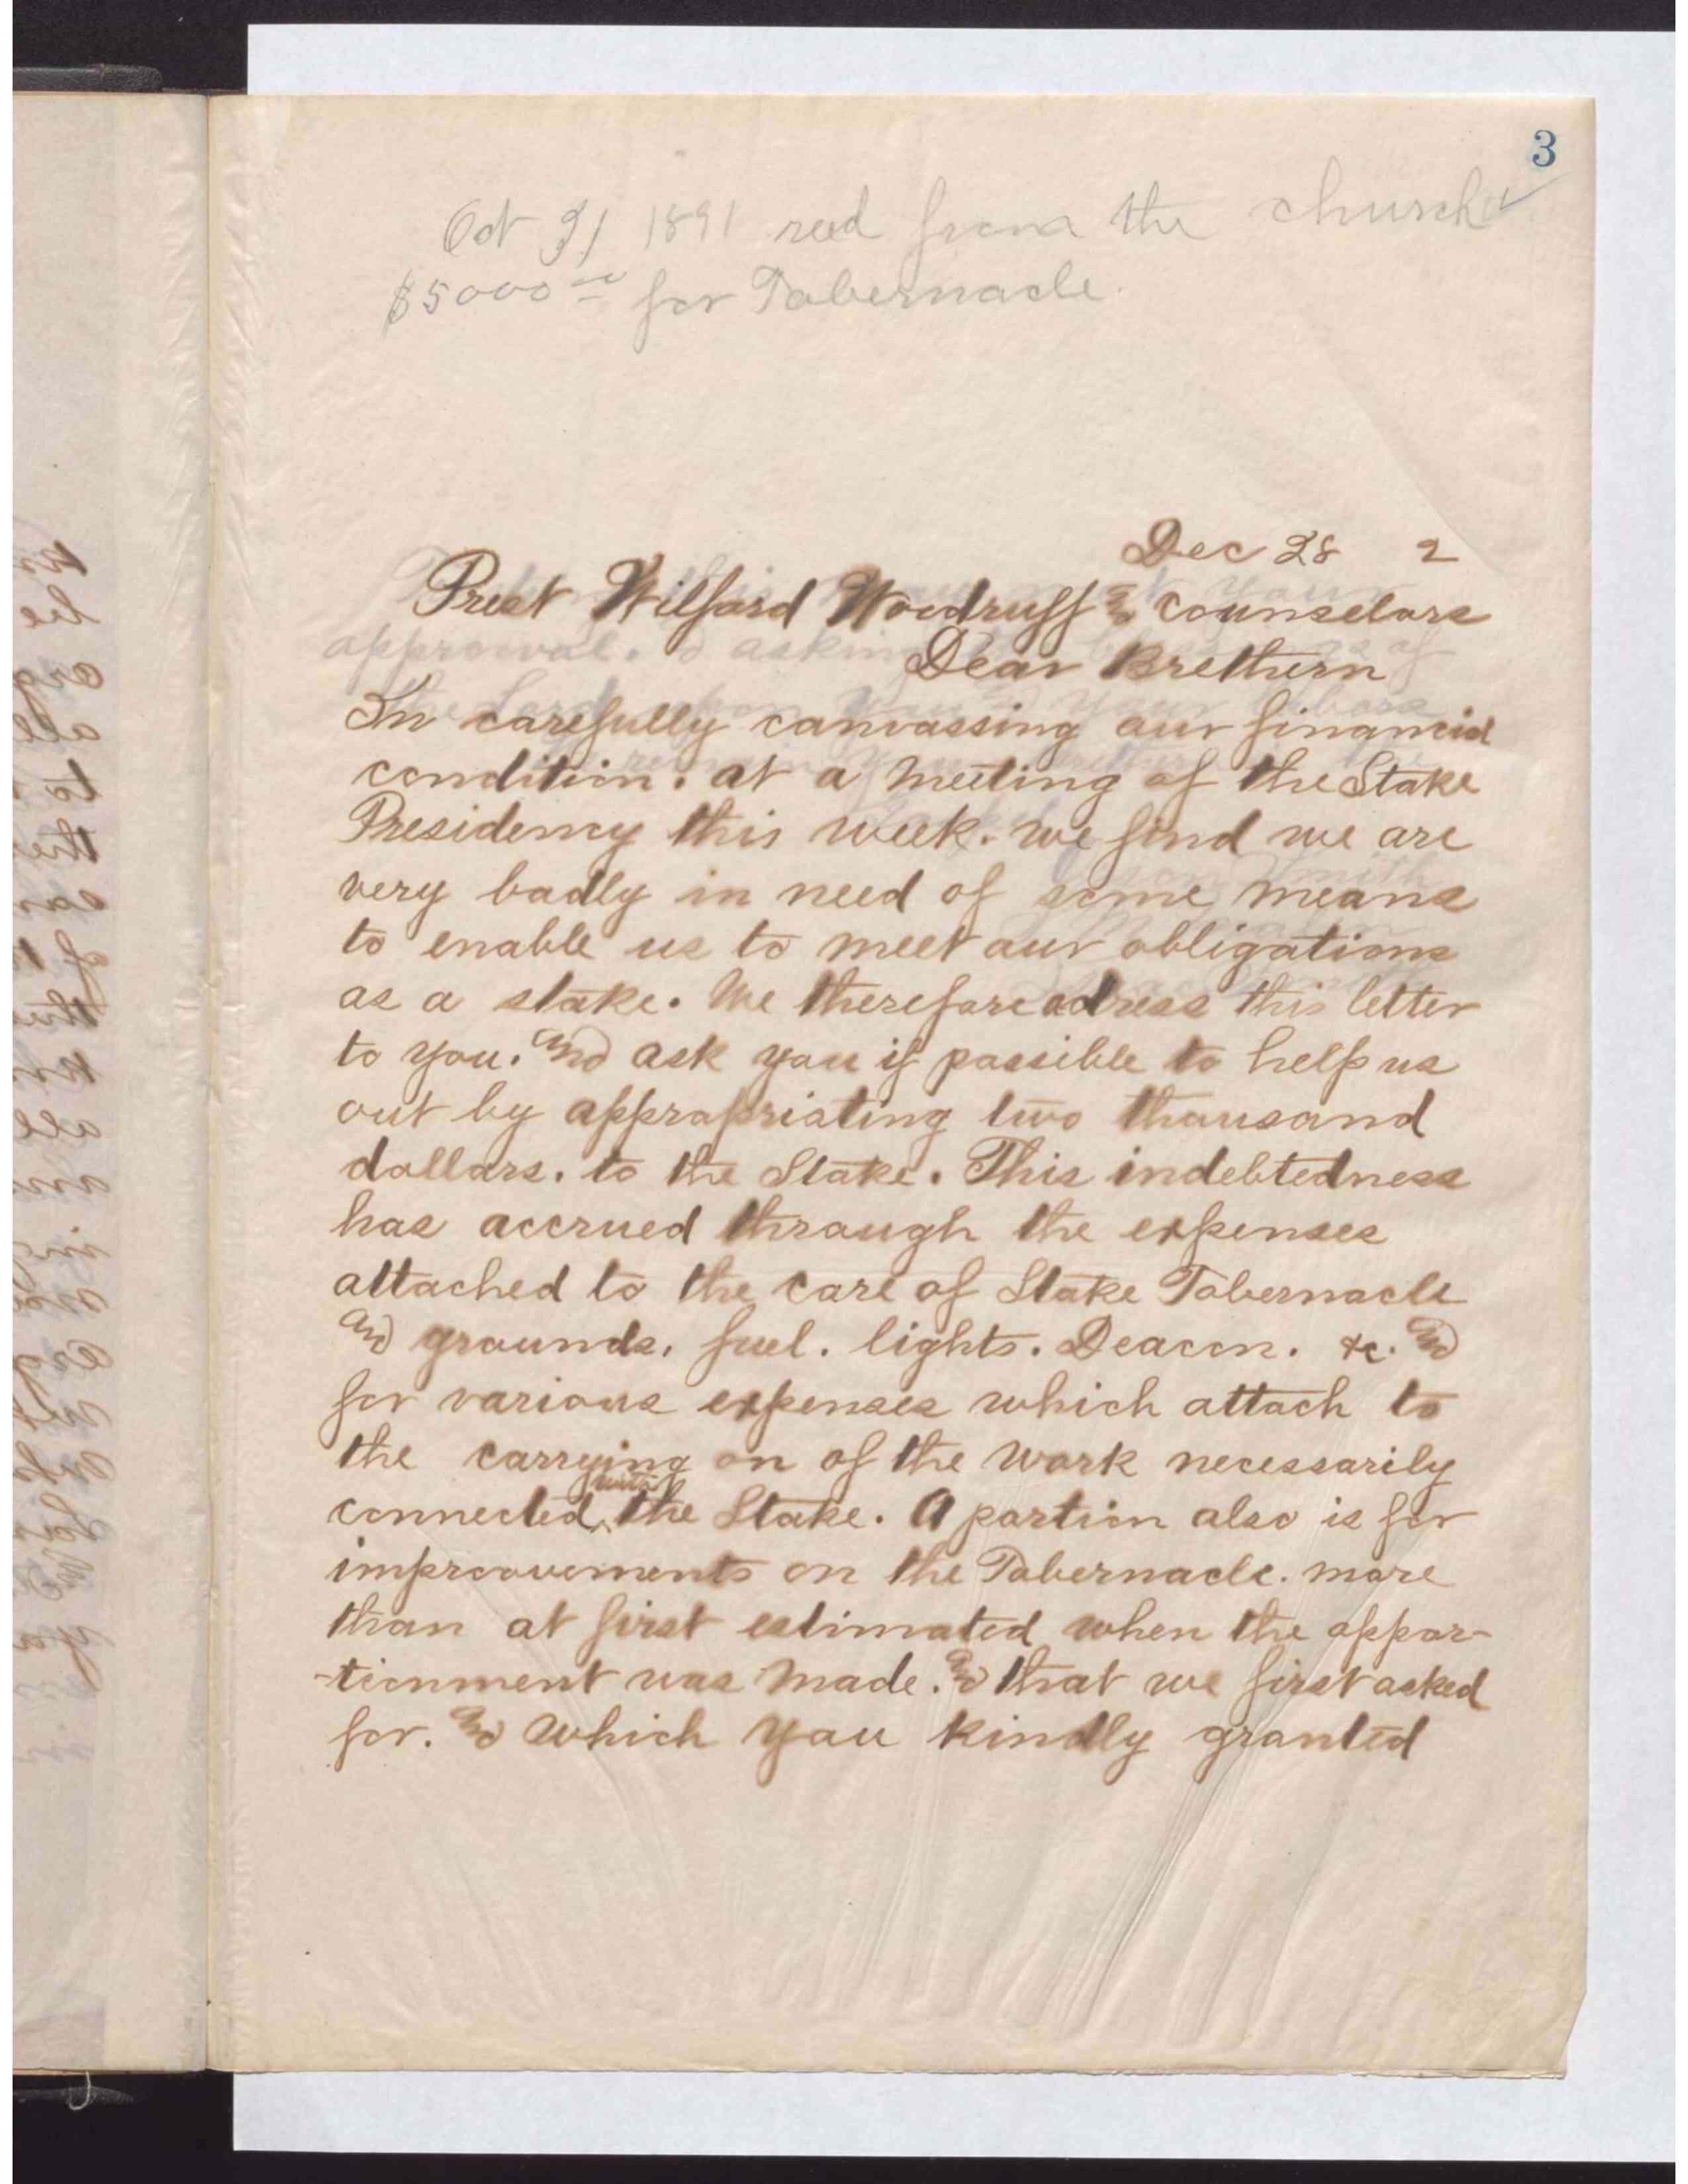 3
Oct 31 1891 recd from the church
$5000.00 for Tabernacle.
Dec 28 2
Prest Wilford Woodruff & Counselors
Dear Brethern
In carefully canvassing our financial
condition. at a meeting of the Stake
Presidency this week. we find we are
very badly in need of some means
to enable us to meet our obligations
as a stake. We therefore adress this letter
to you. And ask you if possible to help us
out by appropriating two thousand
dollars. to the Stake. This indebtedness
has accrued through the expenses
attached to the care of Stake Tabernacle
And grounds, fuel. lights. Deacon. &c. And
for various expenses which attach to
the carrying on of the work necessarily
connected with the Stake. A portion also is for
improovements on the Tabernacle. more
than at first estimated when the appor-
-tionment was made. And that we first asked
for. And which you kindly granted